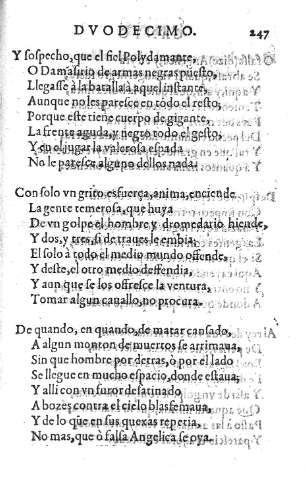 DVODECIMO. 247
Y sospecho, que el fiel Polydamante,
O Damasirio de armas negras puesto,
Llegasse à la batalla à aquel instante,
Aunque no les paresce en todo el resto,
Porque este tiene cuerpo de gigante,
La frente aguda, y negro todo el gesto,
Y en el jugar la valerosa espada
No le paresce alguno dellos nada.
Con solo vn grito esfuerça, anima, enciende
La gente temerosa, que huya
De vn golpe el hombre y dromedario hiende,
Y dos, y tres, si de traues le embia,
El solo à todo el medio mundo offende,
Y deste, el otro medio deffendia,
Y aun que se los offresce la ventura,
Tomar algun cauallo, no procura.
De quando, en quando, de matar cansado,
A algun monton de muertos se arrimaua,
Sin que hombre por detras, ò por el lado
Se llegue en mucho espacio, donde estaua,
Y alli con vn furor desatinado
A bozes contra el cielo blasfemaua,
Y de lo que en sus quexas repetia,
No mas, que ò falsa Angelica se oya.